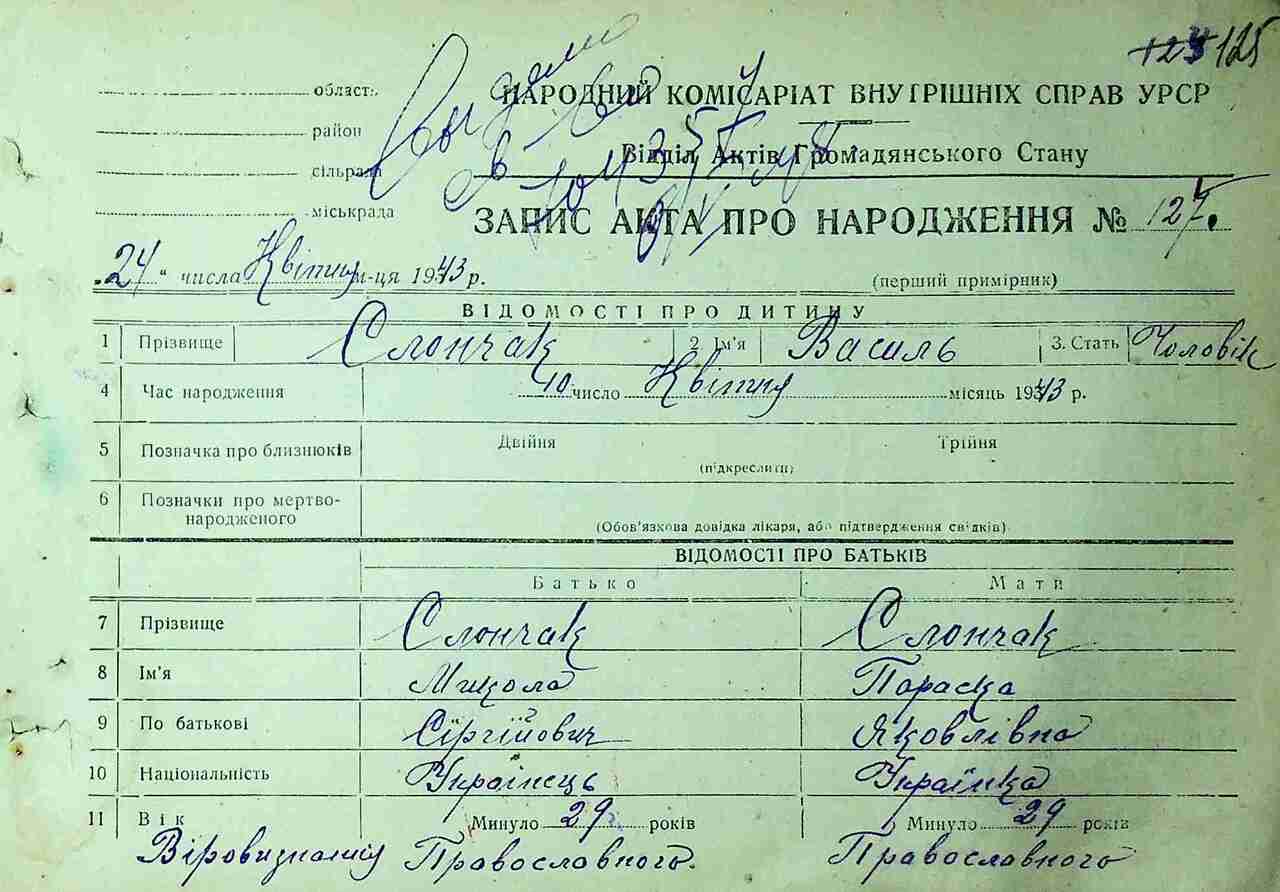 125
област
район
сільрада
міськрада
НАРОДНИЙ КОМІСАРІАТ ВНУТРІШНІХ СПРАВ УРСР
Відділ Актів Громадянського Стану
ЗАПИС АКТА ПРО НАРОДЖЕННЯ № 127.
„24“ числа Квітня м-ця 1943 р.
(перший примірник)
ВІДОМОСТІ ПРО ДИТИНУ
1 Прізвище Слончак 2. Ім'я Василь 3. Стать Чоловік
4 Час народження 10 число Квітня місяць 1943 р.
5 Позначка про близнюків Двійня Трійня
(підкреслити)
6 Позначки про мертво-
народженого
(Обов'язкова довідка лікаря, або підтвердження свідків)
ВІДОМОСТІ ПРО БАТЬКІВ
Батько Мати
7 Прізвище Слончак Слончак
8 Ім'я Микола Параска
9 По батькові Сїргійович Яковлівна
10 Національність Украінець Українка
11 Вік Минуло 29 років Минуло 29 років
Віровизнання Православного. Православного